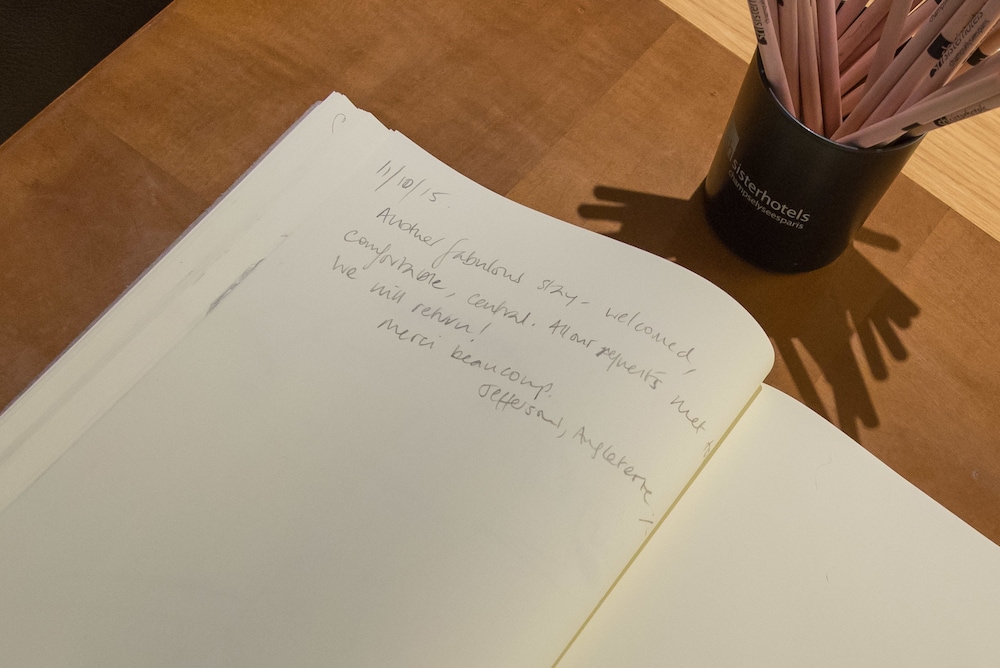 11/10/15.
Another fabulous stay - welcomed,
comfortable, central. All our requests met
We will return!
Merci beaucoup.
Jeffersons, Angleterre
sisterhotels
champselyseesparis